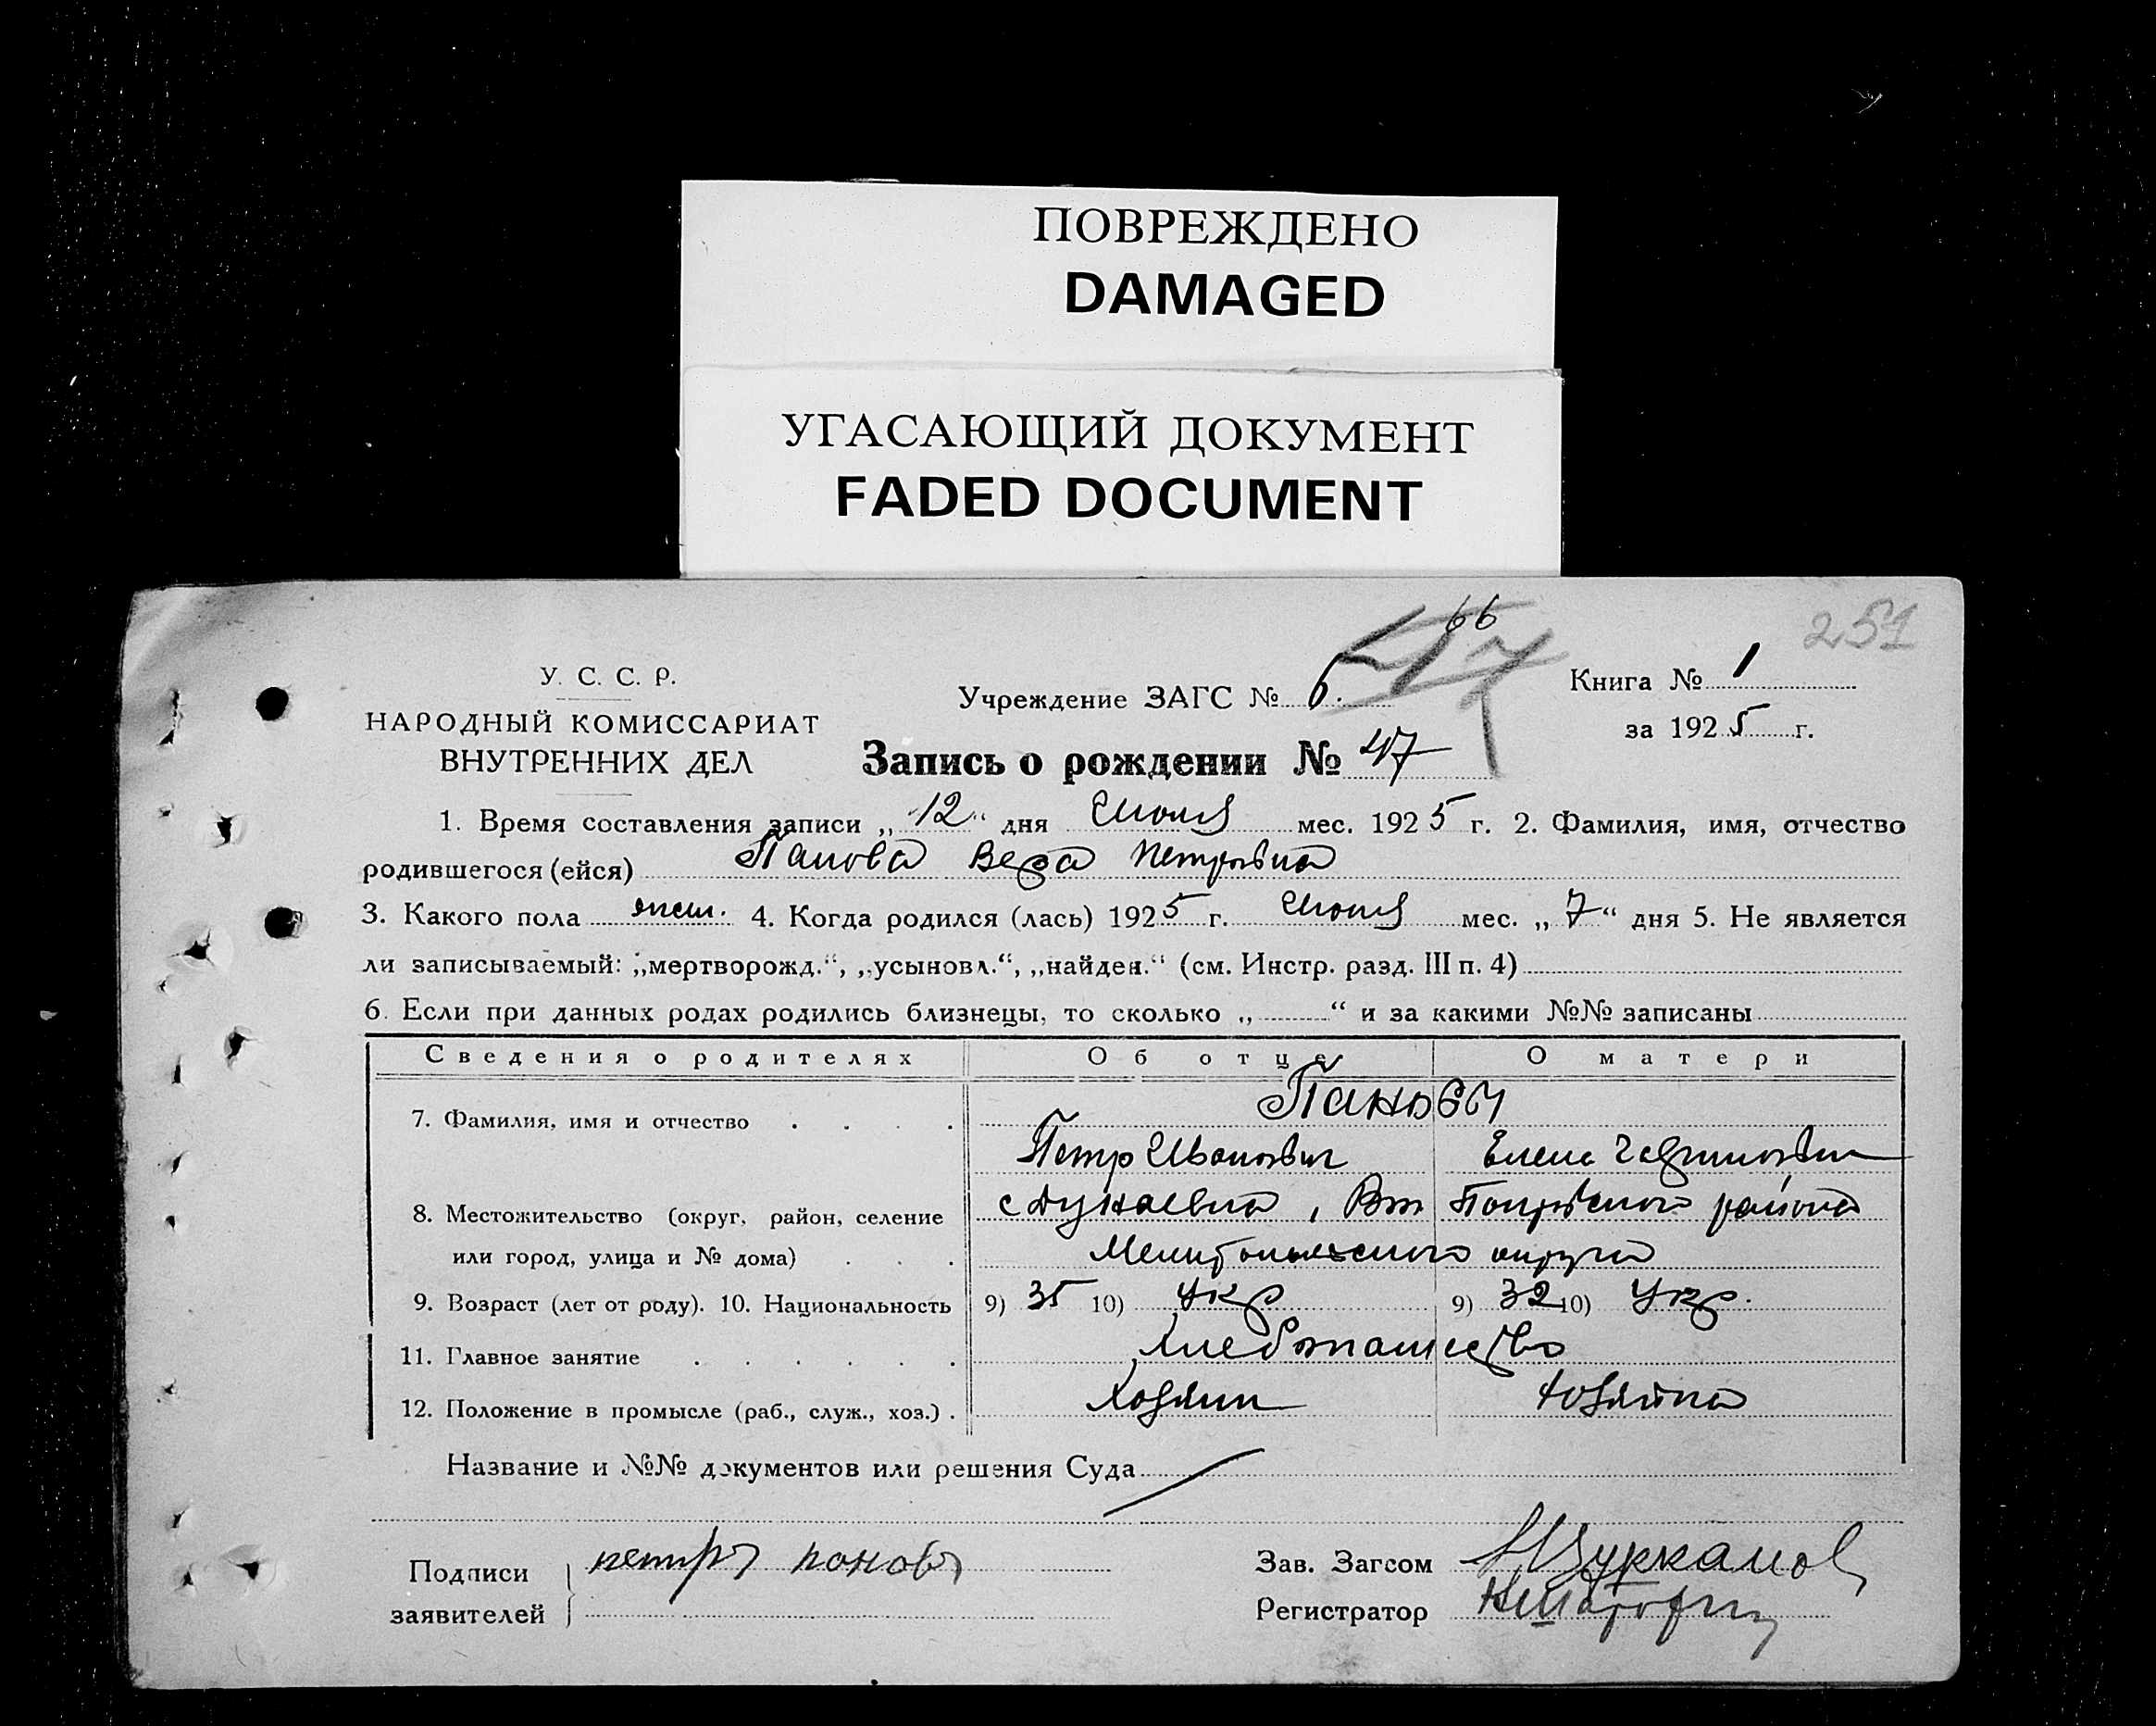 ПОВРЕЖДЕНО
DAMAGED
УГАСАЮЩИЙ ДОКУМЕНТ
FADED DOCUMENT
66
251
У. С. С. Р.
НАРОДНЫЙ КОМИССАРИАТ
ВНУТРЕННИХ ДЕЛ
Учреждение ЗАГС № 6.
47
Книга № 1
за 1925 г.
Запись о рождении № 47
1. Время составления записи „12“ дня Июля мес. 1925 г. 2. Фамилия, имя, отчество
родившегося (ейся) Панова Вера Петровна
3. Какого пола жен. 4. Когда родился (лась) 1925 г. Июля мес. „7“ дня 5. Не является
ли записываемый: „мертворожд.“, „усыновл.“, „найден.“ (см. Инстр. разд. III п. 4)
6. Если при данных родах родились близнецы, то сколько „ “ и за какими №№ записаны
Сведения о родителях Об отце О матери
Пановы
7. Фамилия, имя и отчество
Петр Иванович Елена
8. Местожительство (округ, район, селение с Дунаевка, Покровского района
или город, улица и № дома) Мелитопольского округа
9. Возраст (лет от роду). 10. Национальность 9) 35 10) Укр 9) 32 10) Укр.
11. Главное занятие Хлебопашество
12. Положение в промысле (раб., служ., хоз.) Хозяин Хозяйка
Название и №№ документов или решения Суда
Подписи
заявителей
петръ пановъ
Зав. Загсом
Регистратор